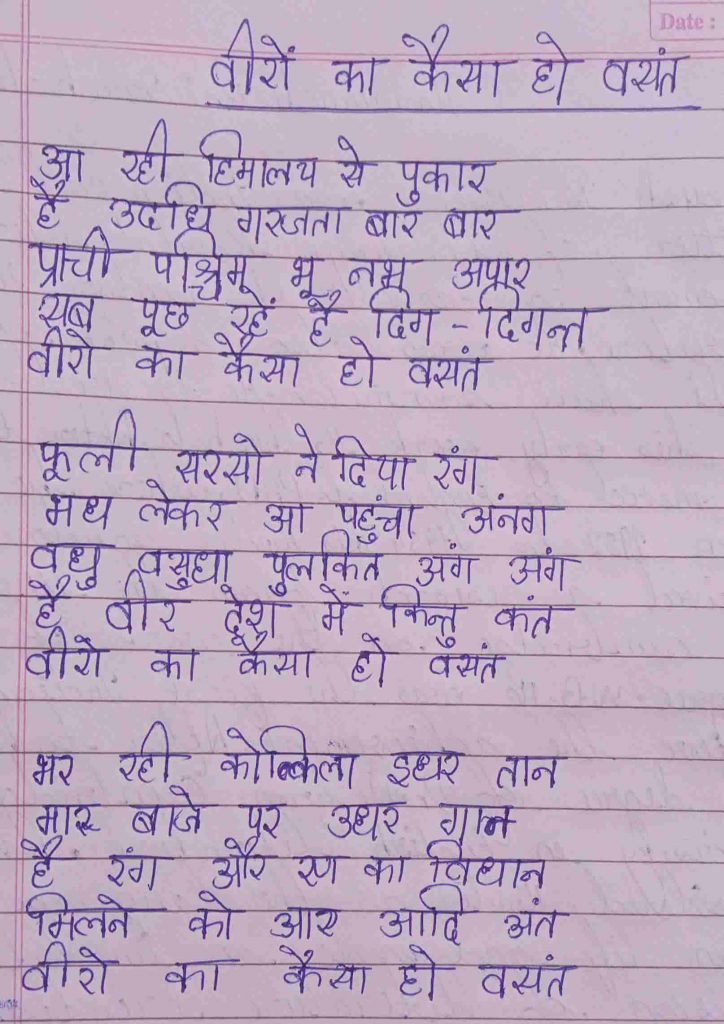 Date :
वीरों का कैसा हो वसंत
आ रही हिमालय से पुकार
है उदधि गरजता बार बार
प्राची पश्चिम भू नभ अपार
सब पूछ रहें है दिग - दिगन्त
वीरो का कैसा हो वसंत
फूली सरसो ने दिया रंग
मधु लेकर आ पहुंचा अंनग
वधु वसुधा पुलकित अंग अंग
है वीर देश में किन्तु कंत
वीरो का कैसा हो वसंत
भर रही कोकिला इधर तान
मारू बाजे पर उधर गान
है रंग और रण का विधान
मिलने को आए आदि अंत
वीरो का कैसा हो वसंत